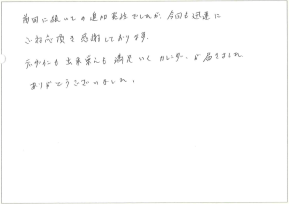 前回に続いての追加発注でしたが、今回も迅速に
ご対応頂き感謝しております。
出来栄えも満足いくカレンダーが届きました
ありがとうございました。